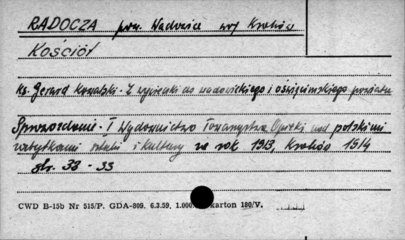 RADOCZA pow. Wadowice woj Kraków
Kościół
Ks. Gerard Kowalski - Z wycieczki do wadowickiego i oświęcimskiego powiatu
Sprawozdanie - I Wydawnictwo Towarzystwa Opieki nad polskimi
zabytkami sztuki i kultury za rok 1913, Kraków 1914
str. 33 - 35
CWD B-15b Nr 515/P. GDA-809. 6.3.59. 1.000 karton 180/V.